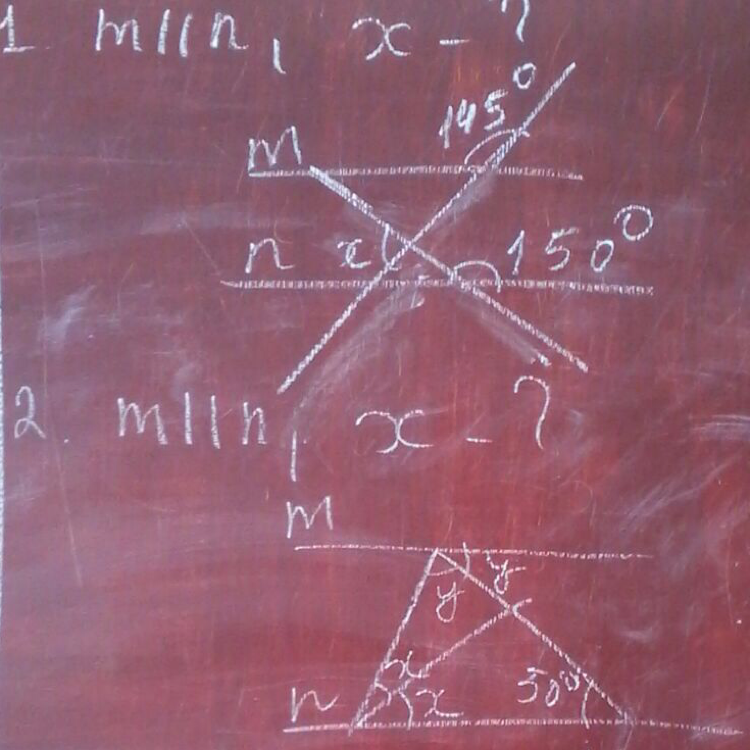 1 m||n, x - ?
145°
m
n x 150°
2. m||n, x - ?
m
y y
x
n x 50°